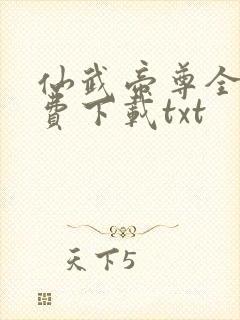 仙武帝尊全
費下載txt
天下5